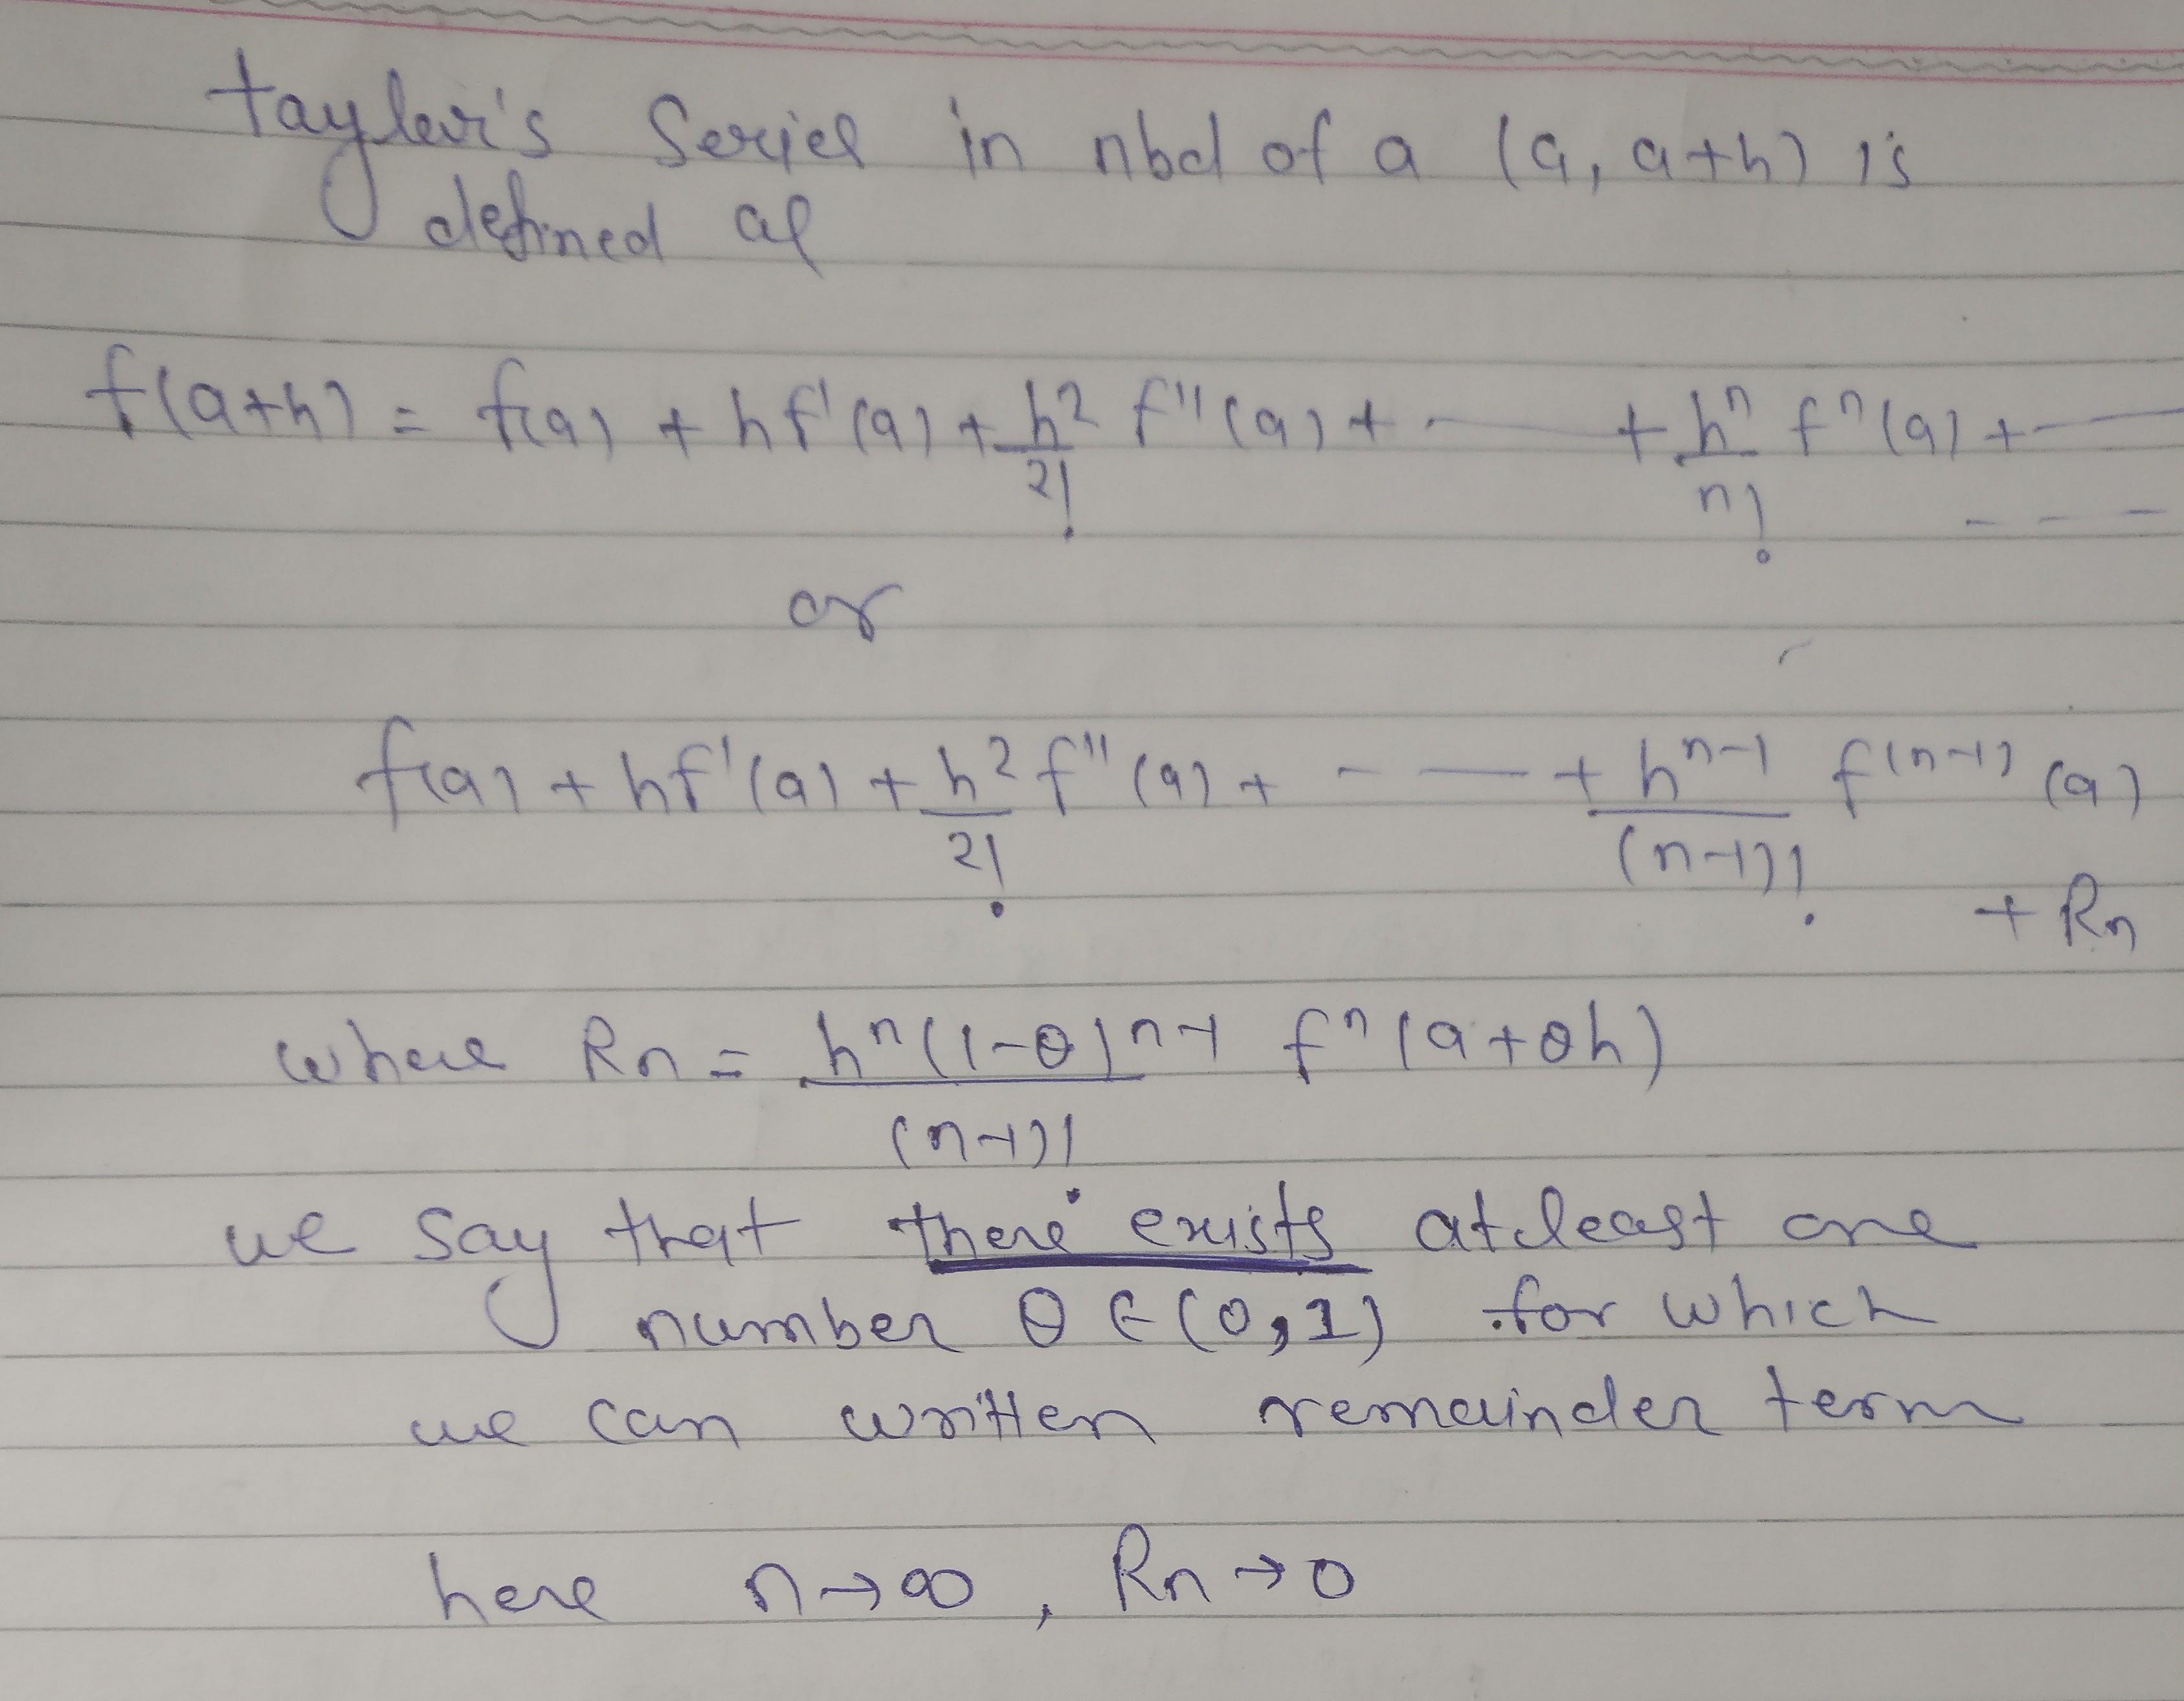 Taylor's Series in nbd of a (a, a+h) is
defined as
f(a+h) = f(a) + hf'(a) + h²/2! f''(a) + - — + hⁿ/n! fⁿ(a) + — - - -
or
f(a) + hf'(a) + h²/2! f''(a) + - — + hⁿ⁻¹/(n-1)! f⁽ⁿ⁻¹⁾(a)
+ Rn
where Rn = hⁿ(1-θ)ⁿ⁻¹/(n-1)! fⁿ(a+θh)
we say that there exists atleast one
number θ ∈ (0,1) for which
we can written remainder term
here n→∞, Rn→0